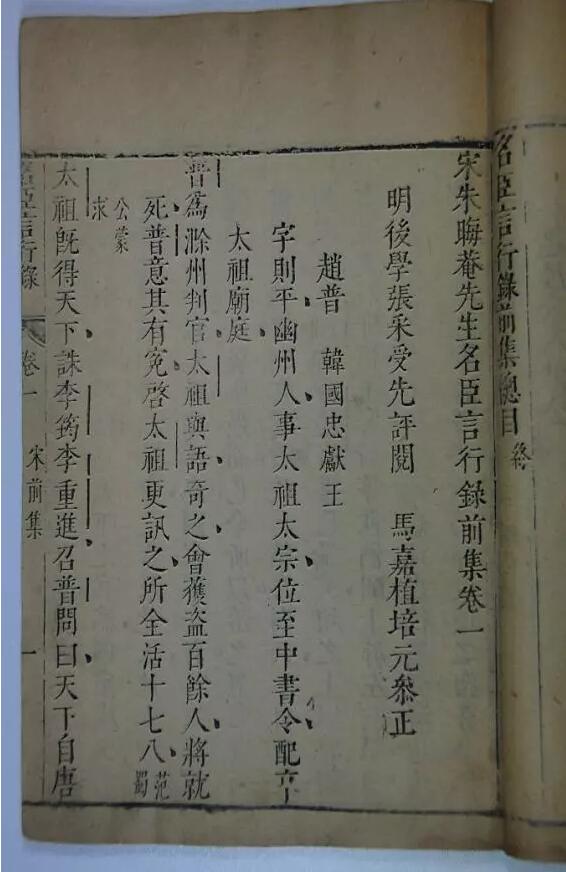 名臣言行錄前集總目 終
宋朱晦菴先生名臣言行錄前集卷一
明後學張采受先評閱 馬嘉植培元叅正
趙普 韓國忠獻王
字則平幽州人事太祖太宗位至中書令配
太祖廟庭
普爲滁州判官太祖與語奇之會獲盜百餘人將就
死普意其有冤啓太祖更訊之所全活十七八 范蜀
公蒙求
太祖旣得天下誅李筠李重進召普問曰天下自唐
名臣言行錄 卷一 宋前集 一